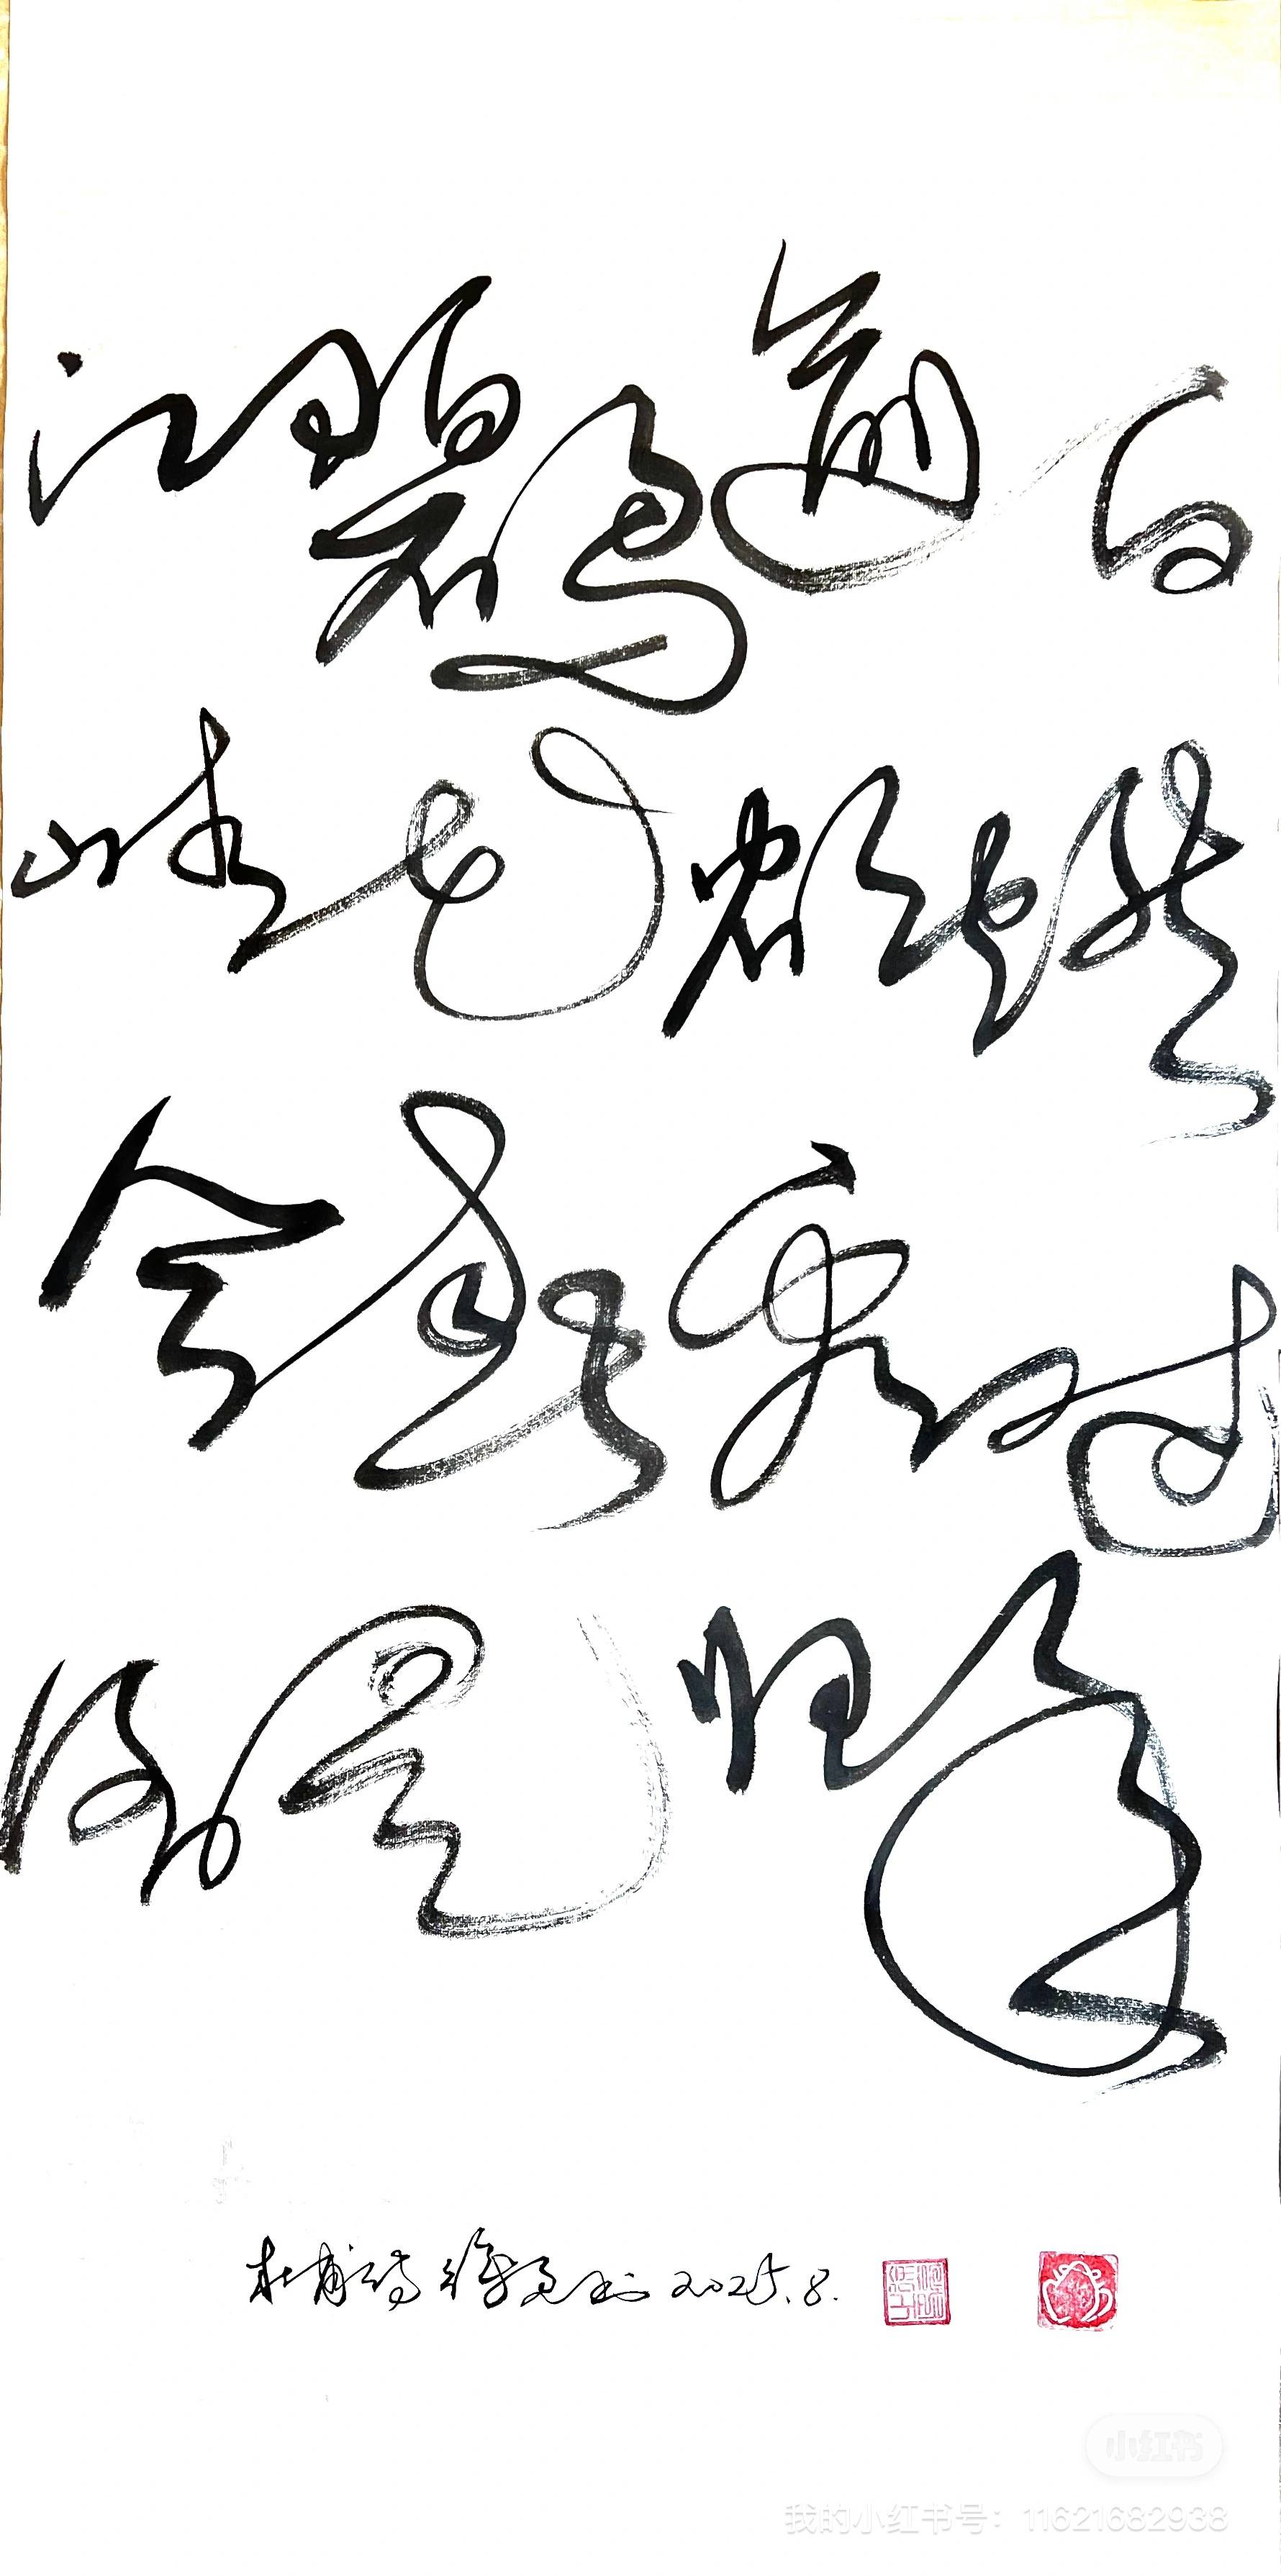 江碧鸟逾白
山青花欲燃
今春看又过
何日是归年
杜甫诗 2025.8.
小红书
我的小红书号：11621682938